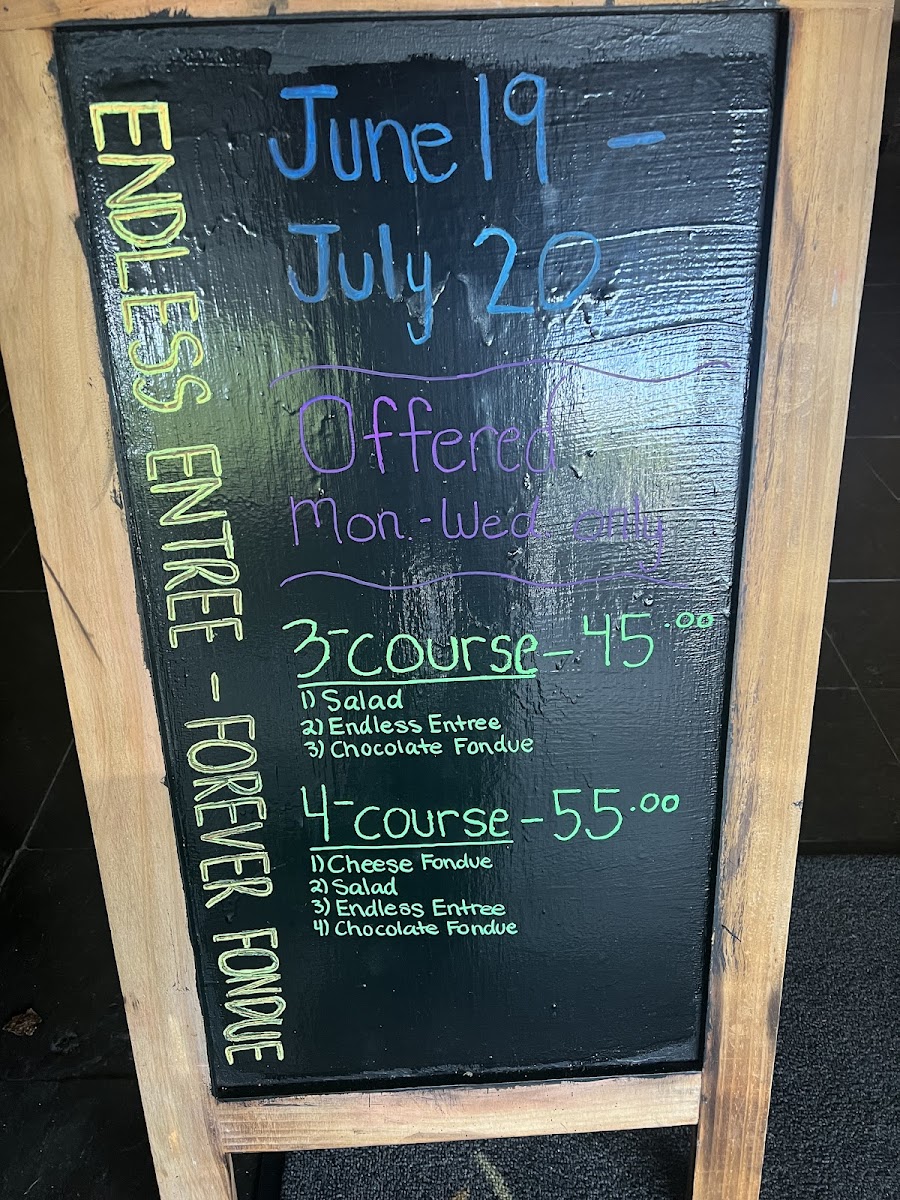 ENDLESS ENTREE - FOREVER FONDUE
June 19 -
July 20
Offered
Mon.-Wed only
3-course - 45.00
1) Salad
2) Endless Entree
3) Chocolate Fondue
4-course - 55.00
1) Cheese Fondue
2) Salad
3) Endless Entree
4) Chocolate Fondue